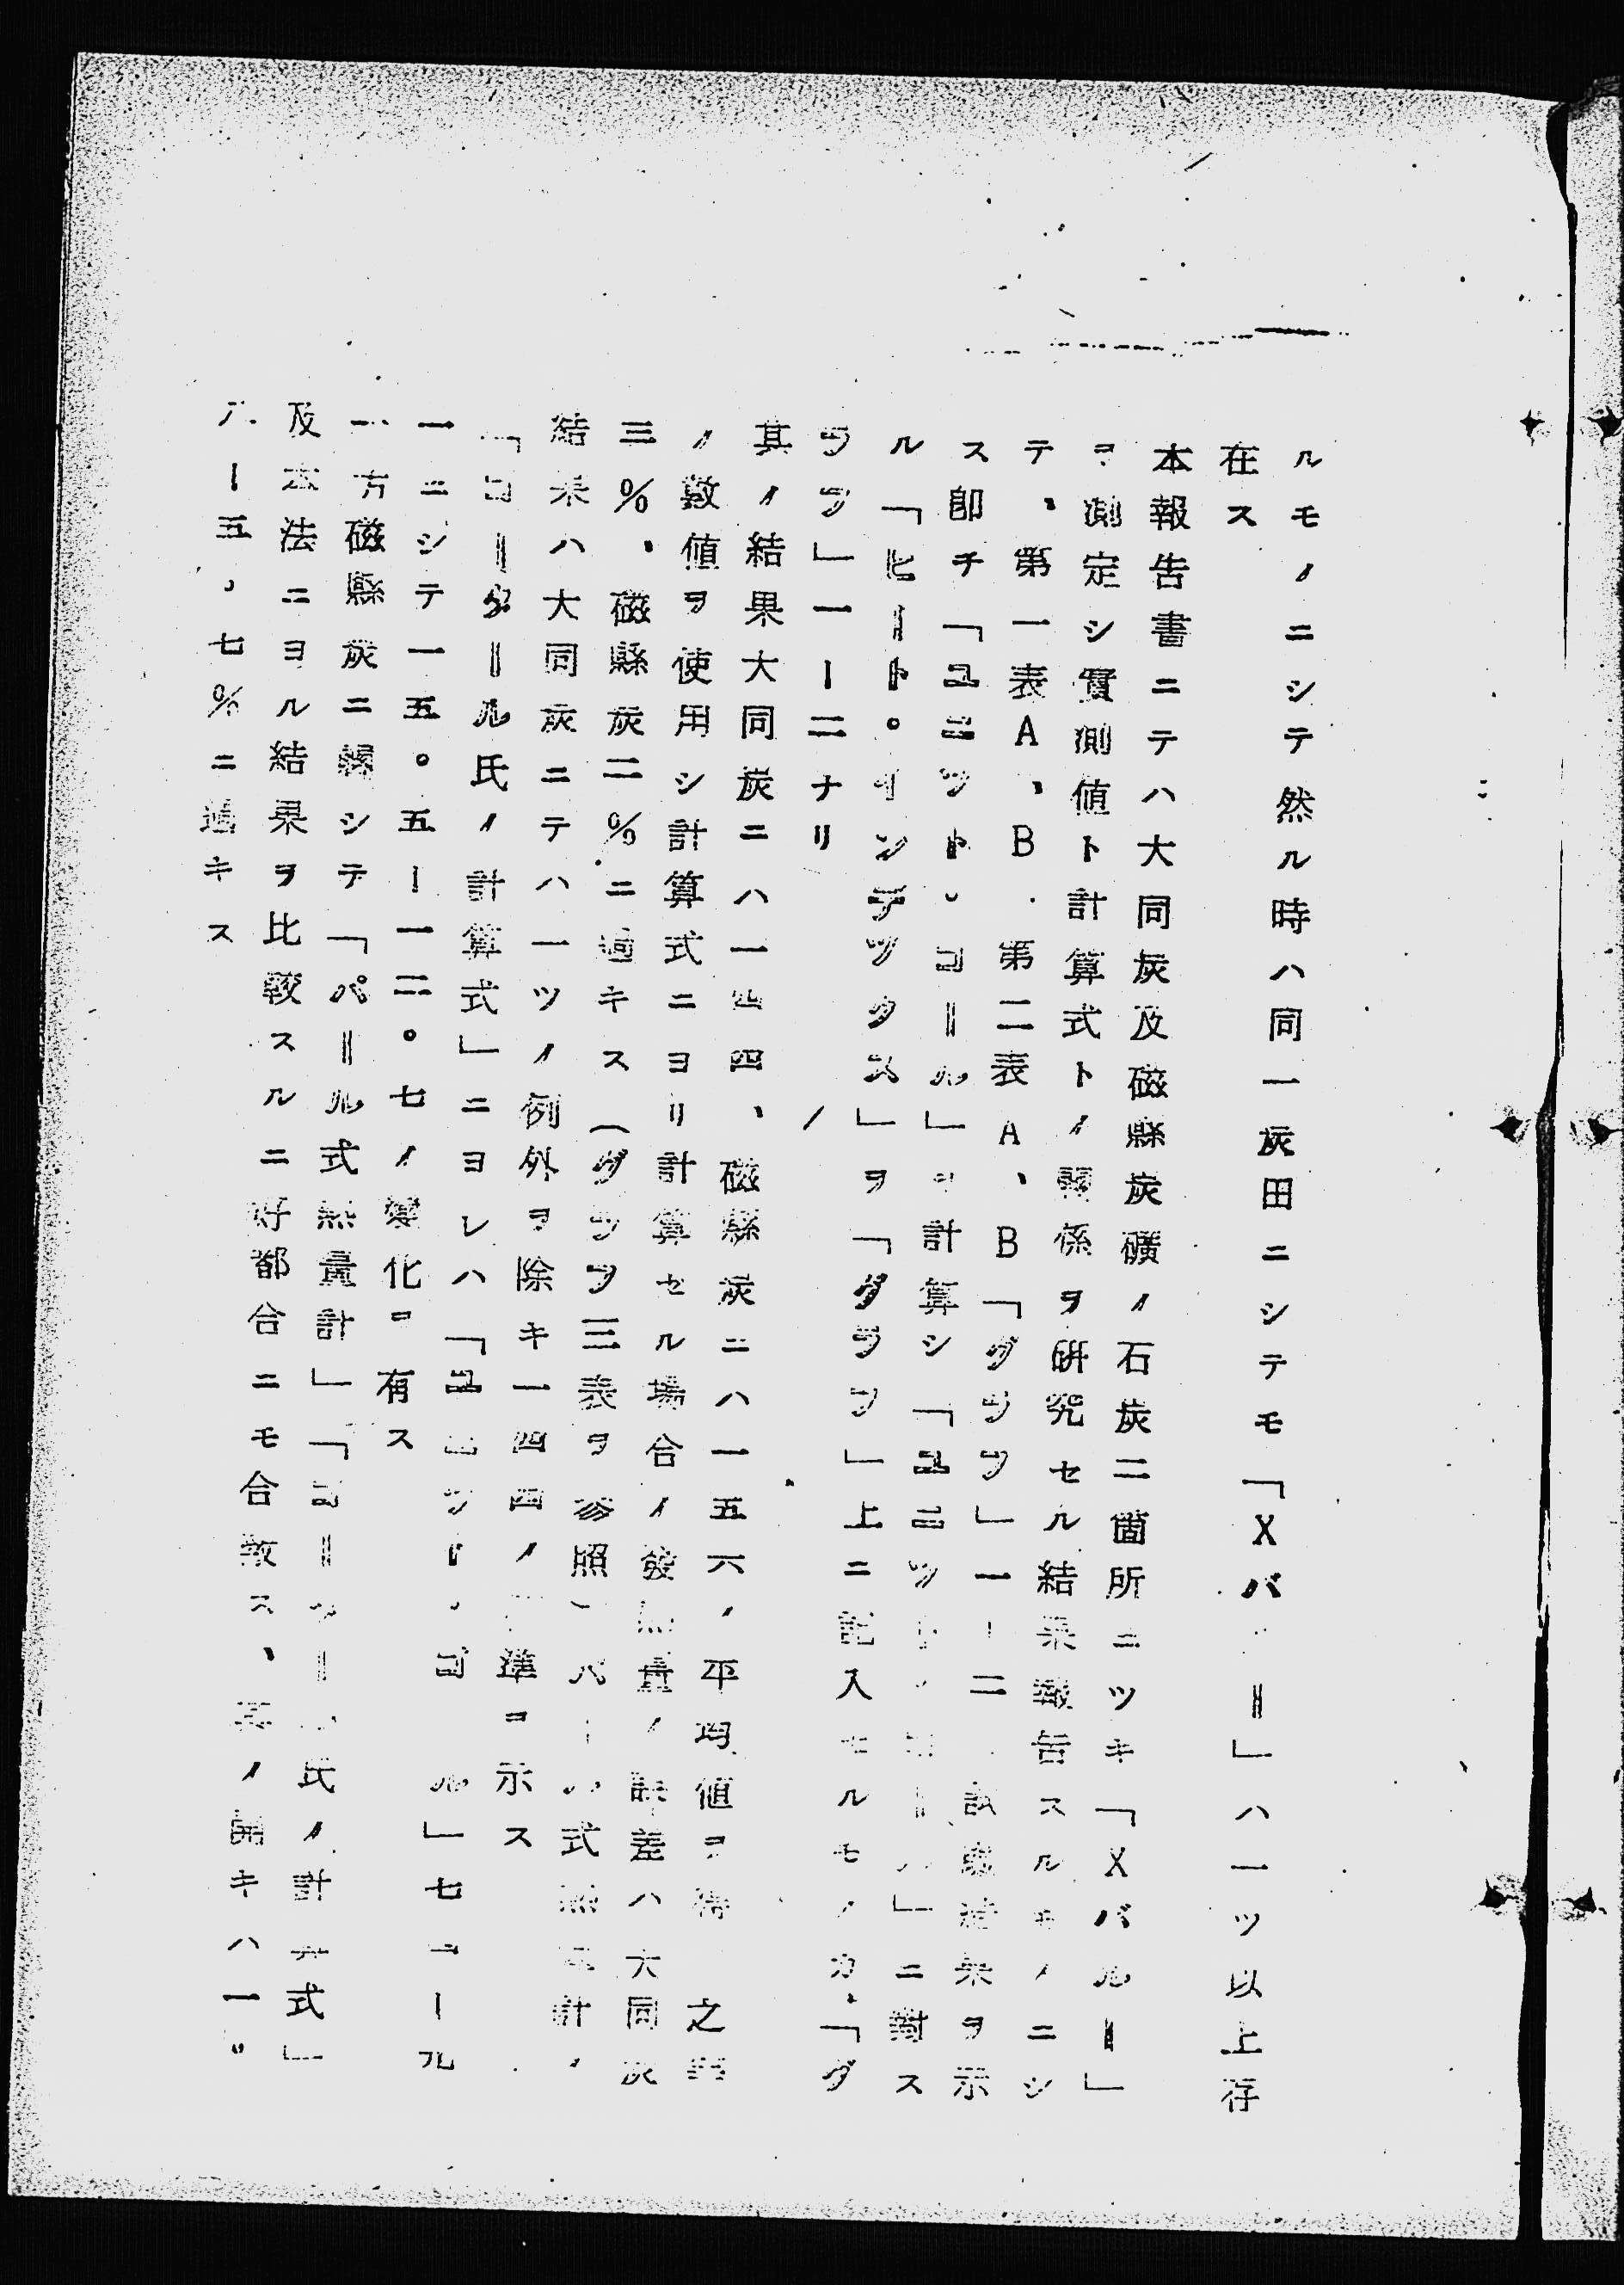 ルモノニシテ然ル時ハ同一炭田ニシテモ「Xバー」ハ一ツ以上存
在ス
本報告書ニテハ大同炭及磁縣炭礦ノ石炭二箇所ニツキ「Xバルー」
ヲ測定シ實測値ト計算式トノ關係ヲ硏究セル結果報告スルモノニシ
テ、第一表A、B.第二表A、B「グラフ」一ー二 試驗結果ヲ示
ス卽チ「ユニツト、コール」ヲ計算シ「ユニツト、コール」ニ對ス
ル「ヒート。インデツクス」ヲ「グラフ」上ニ記入セルモノカ、「グ
ラフ」一ー二ナリ
其ノ結果大同炭ニハ一四四、磁縣炭ニハ一五六ノ平均値ヲ得 之等
ノ數値ヲ使用シ計算式ニヨリ計算セル場合ノ發熱量ノ誤差ハ大同炭
三%、磁縣炭二%ニ過キス(グラフ三表ヲ參照)パール式熱量計ノ
結果ハ大同炭ニテハ一ツノ例外ヲ除キ一四四ノ 準ヲ示ス
「コーターール氏ノ計算式」ニヨレハ「ユニツト、コール」七 ー九
一ニシテ一五。五ー一二。七ノ變化ヲ有ス
一方磁縣炭ニ關シテ「パール式熱量計」「 氏ノ計算式」
及本法ニヨル結果ヲ比較スルニ好都合ニモ合致ス、其ノ開キハ一。
八ー五、七%ニ過キス